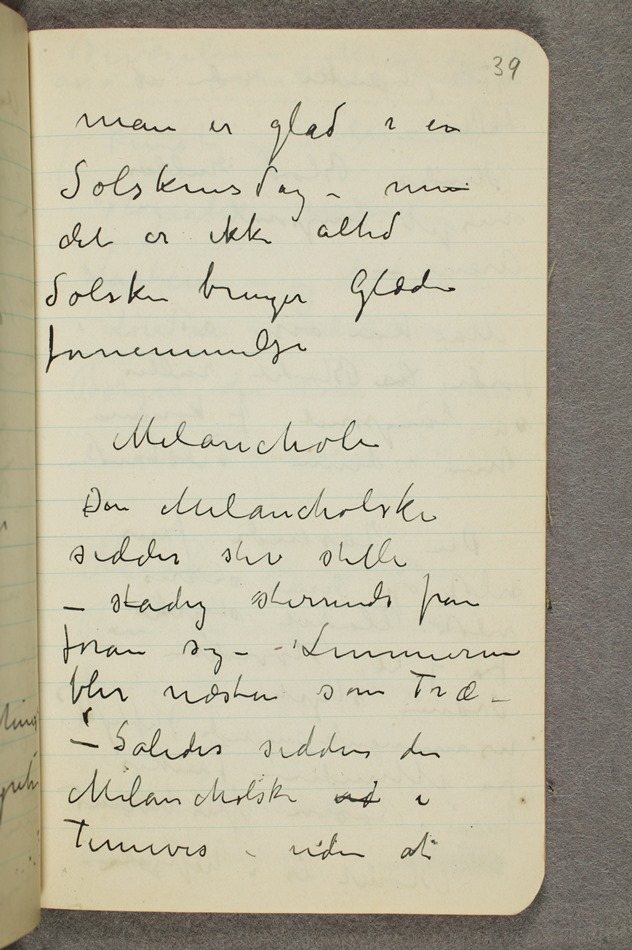 39
man er glad i en
Solskinsdag – men
det er ikke altid
Solskin bringer Glæde
fornemmelse
Melancholi
Den Melancholske
sidder stiv stille
– stadig stirrende
foran sig – Lemmerne
blir næsten som Træ –
– Således sidder den
Melancholske ud i
Timevis – uden at